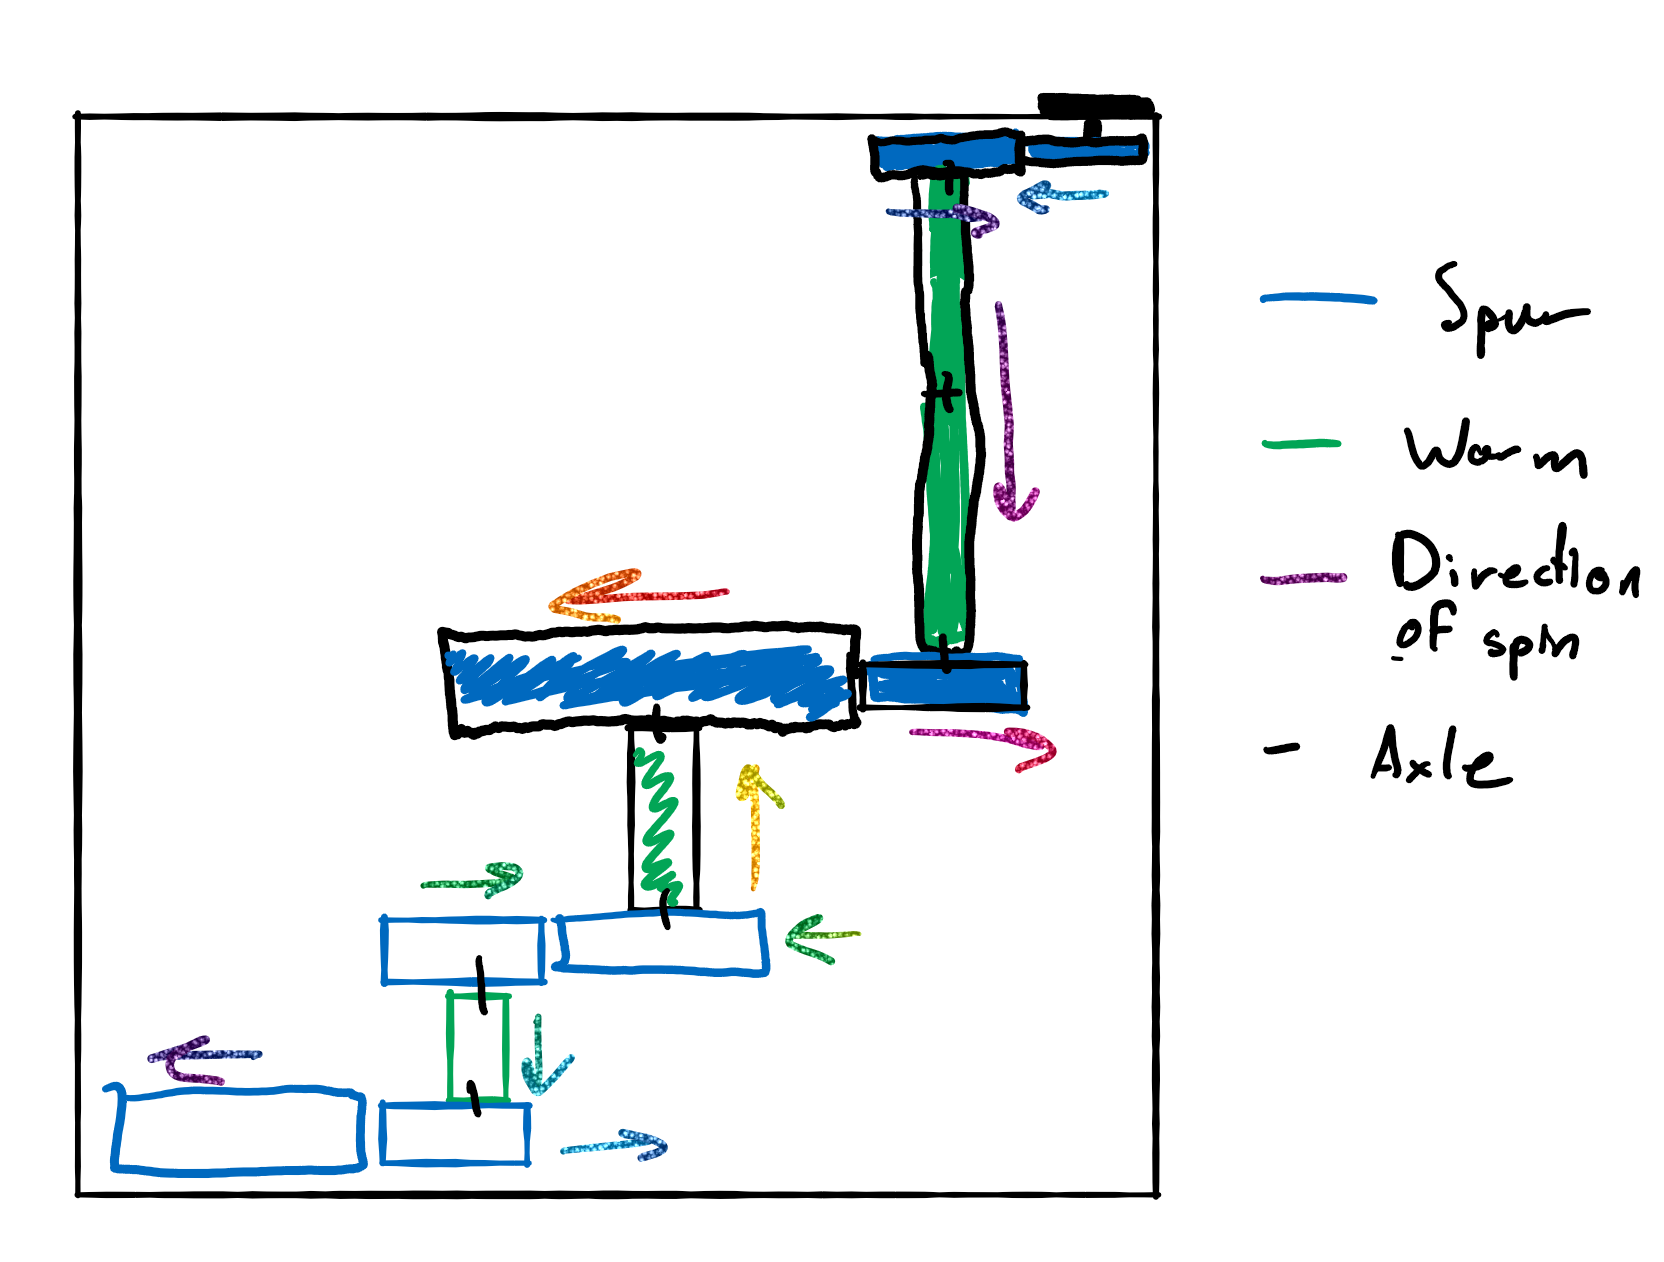 Spur
Worm
Direction
of spin
Axle